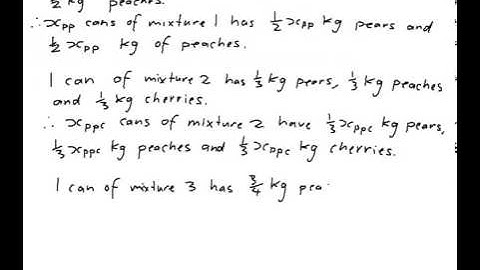 ½ kg peaches.
∴ xpp cans of mixture 1 has ½ xpp kg pears and
½ xpp kg of peaches.
1 can of mixture 2 has ⅓ kg pears, ⅓ kg peaches
and ⅓ kg cherries.
∴ xppc cans of mixture 2 have ⅓ xppc kg pears,
⅓ xppc kg peaches and ⅓ xppc kg cherries.
1 can of mixture 3 has ¾ kg pea